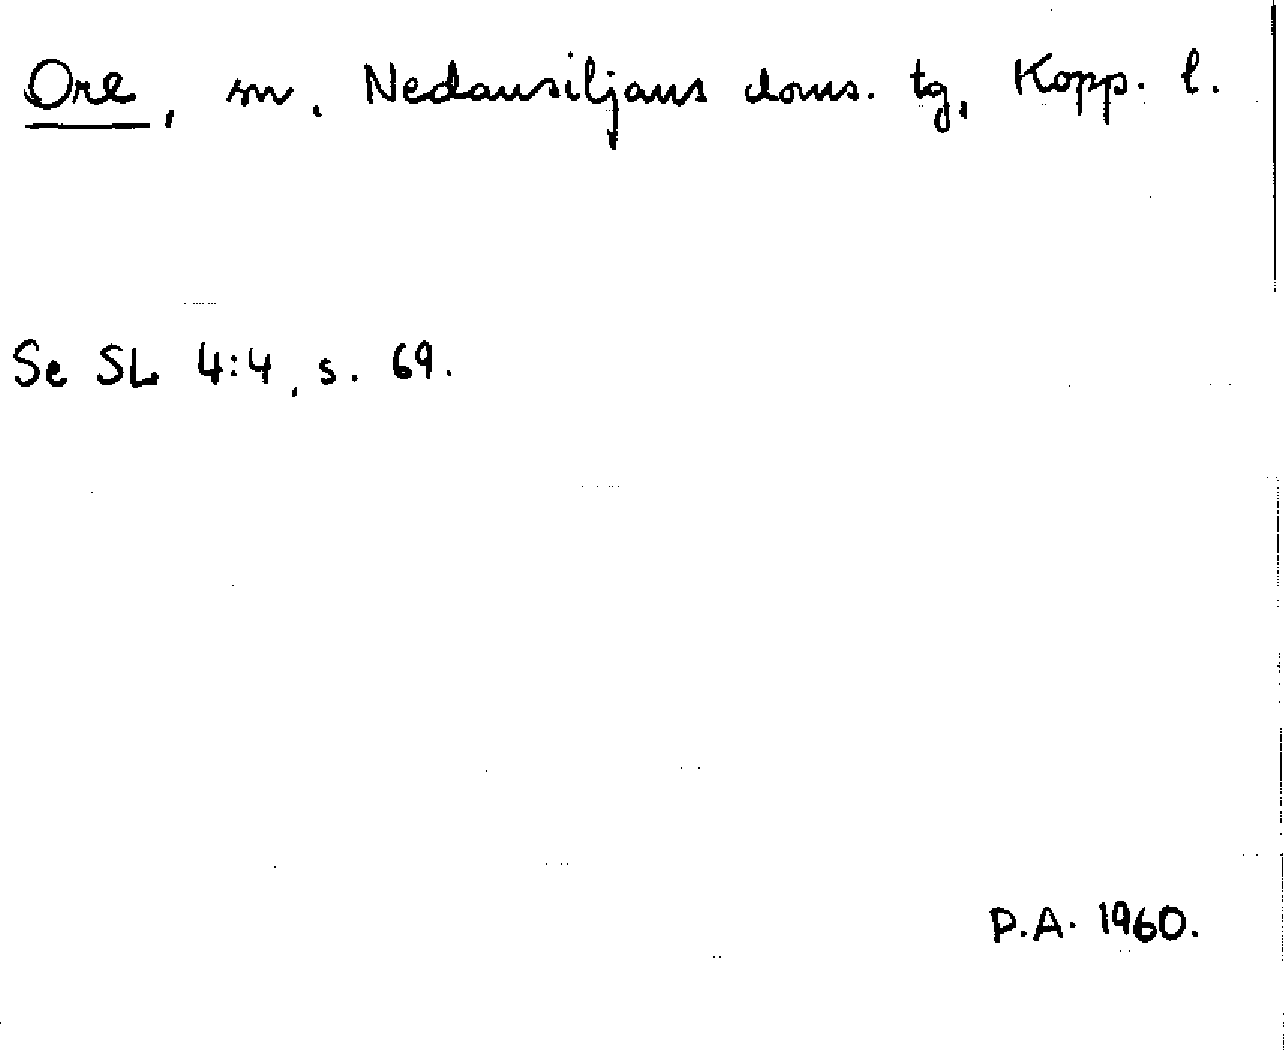 Ore, sn. Nedansiljans doms. tg, Kopp. l.
Se SL 4:4, s. 69.
P.A. 1960.